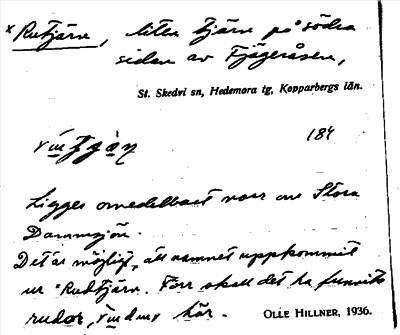 x Rutjärn, liten tjärn på södra
sidan av Fjägeråsen,
St. Skedvi sn, Hedemora tg, Kopparbergs län.
184
Ligger omedelbart norr om Stora
Dammsjön.
Det är möjligt, att namnet uppkommit
ur *Rudtjärn. Förr skall det ha funnits
rudor, här.
OLLE HILLNER, 1936.